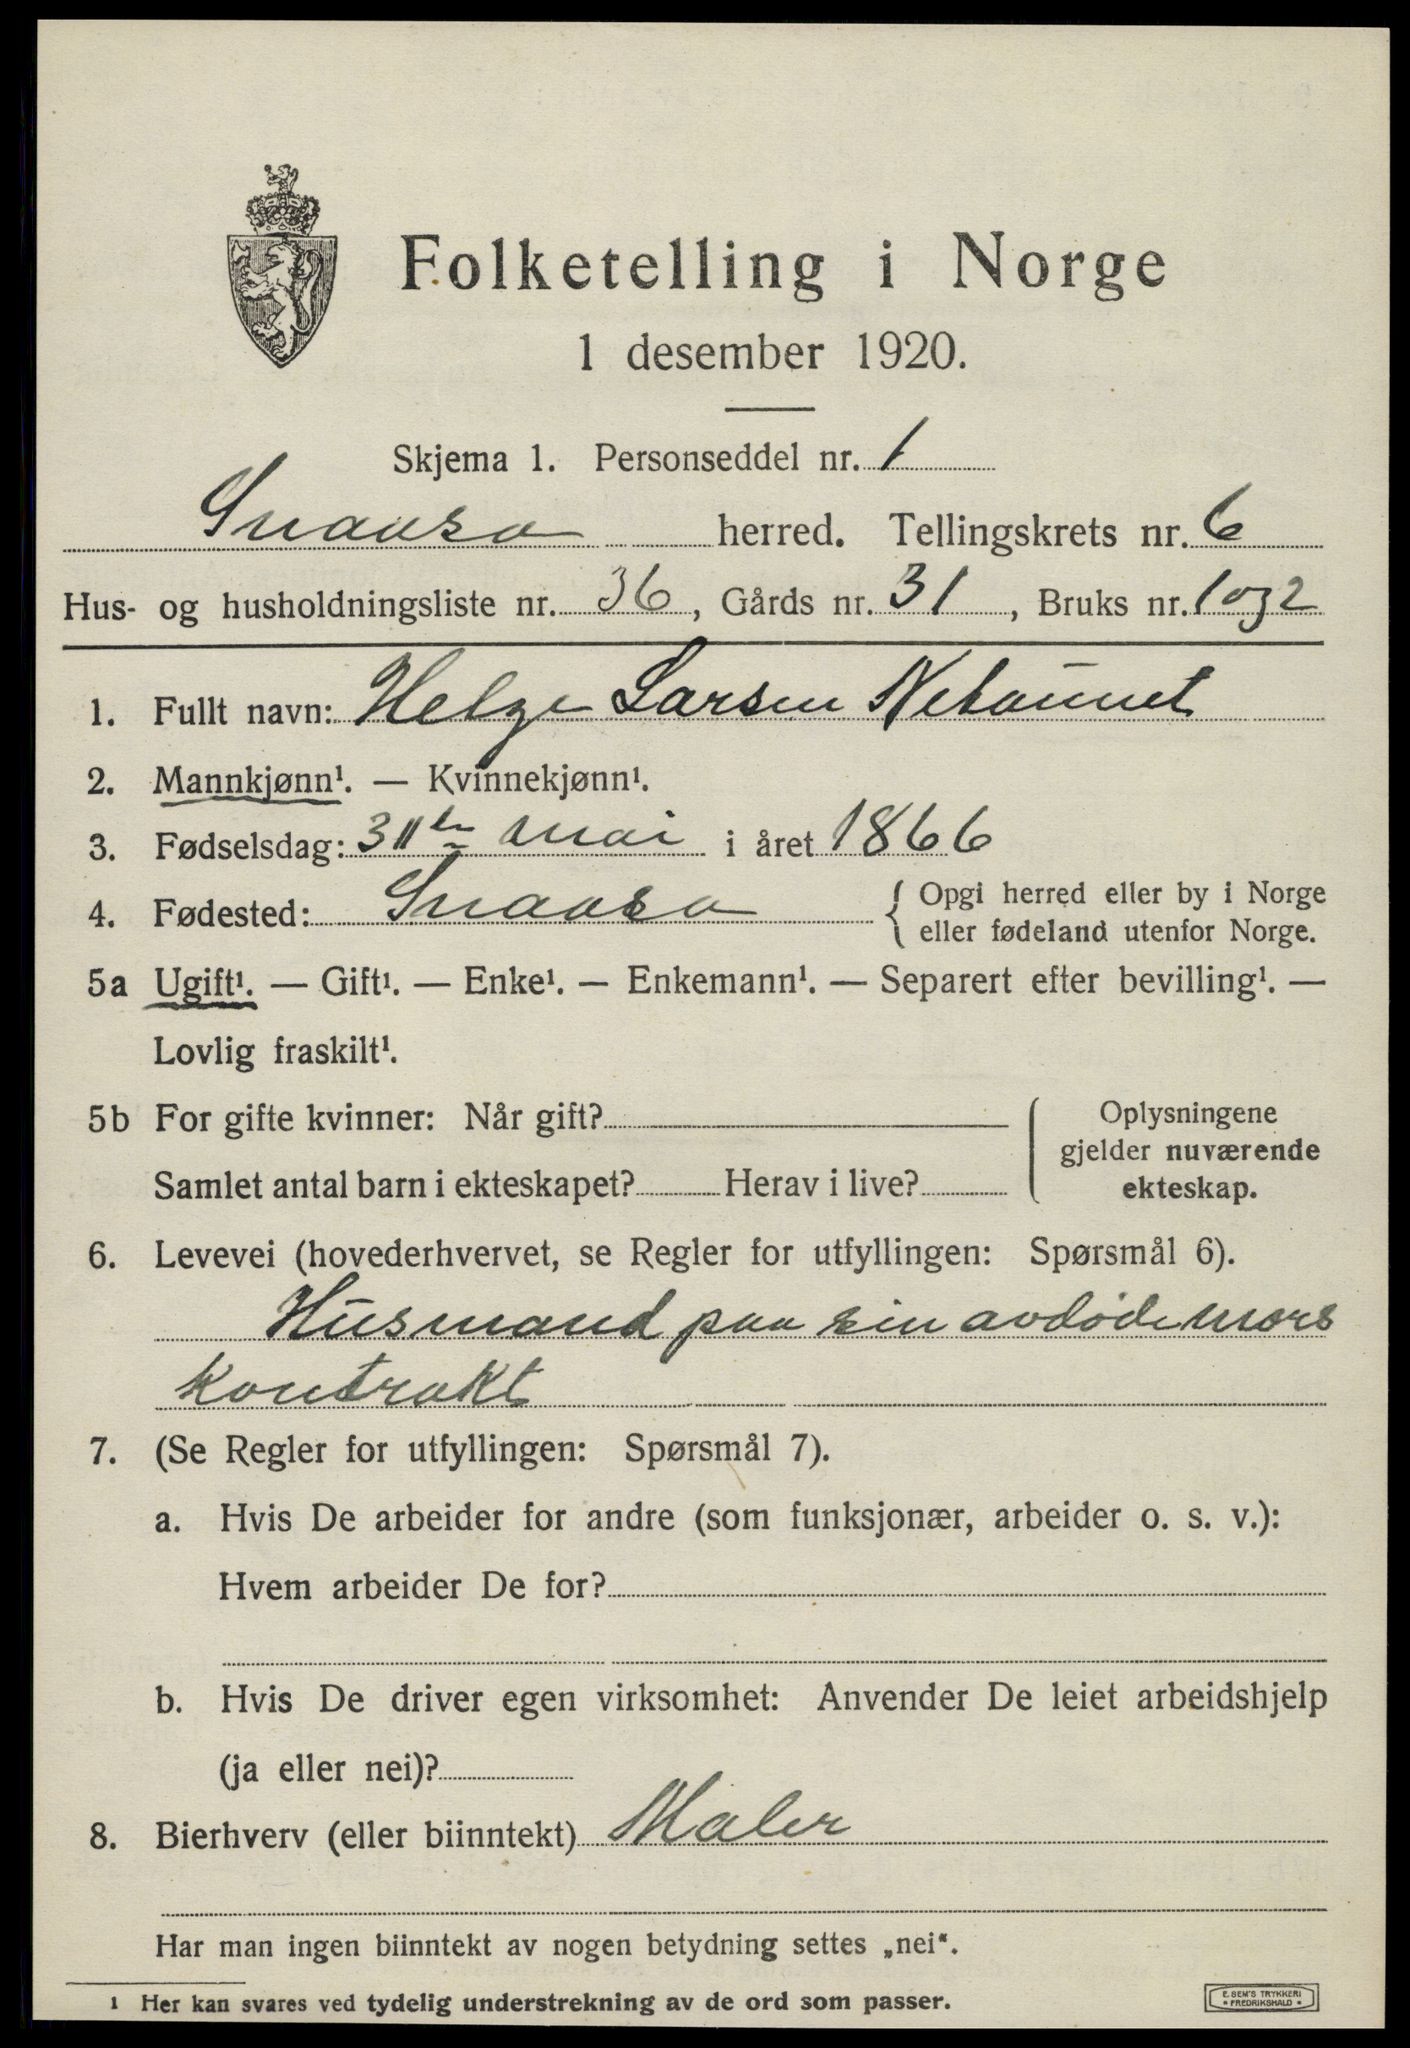 Folketelling i Norge
1 desember 1920.
Skjema 1. Personseddel nr. 1
Snaasa herred. Tellingskrets nr. 6
Hus- og husholdningsliste nr. 36, Gårds nr. 31, Bruks nr. 1 og 2
1. Fullt navn: Helge Larsen
2. Mannkjønn¹. — Kvinnekjønn¹.
3. Fødselsdag: 31te mai i året 1866
4. Fødested: Snaasa { Opgi herred eller by i Norge
eller fødeland utenfor Norge.
5a Ugift¹. — Gift¹. — Enke¹. — Enkemann¹. — Separert efter bevilling¹. —
Lovlig fraskilt¹.
5b For gifte kvinner: Når gift?
Samlet antal barn i ekteskapet? Herav i live?
Oplysningene
gjelder nuværende
ekteskap.
6. Levevei (hovederhvervet, se Regler for utfyllingen: Spørsmål 6).
Husmand paa sin avdøde mors
kontrakt
7. (Se Regler for utfyllingen: Spørsmål 7).
a. Hvis De arbeider for andre (som funksjonær, arbeider o. s. v.):
Hvem arbeider De for?
b. Hvis De driver egen virksomhet: Anvender De leiet arbeidshjelp
(ja eller nei)?
8. Bierhverv (eller biinntekt) Maler
Har man ingen biinntekt av nogen betydning settes „nei“.
1 Her kan svares ved tydelig understrekning av de ord som passer.
E. SEM'S TRYKKERI
FREDRIKSHALD